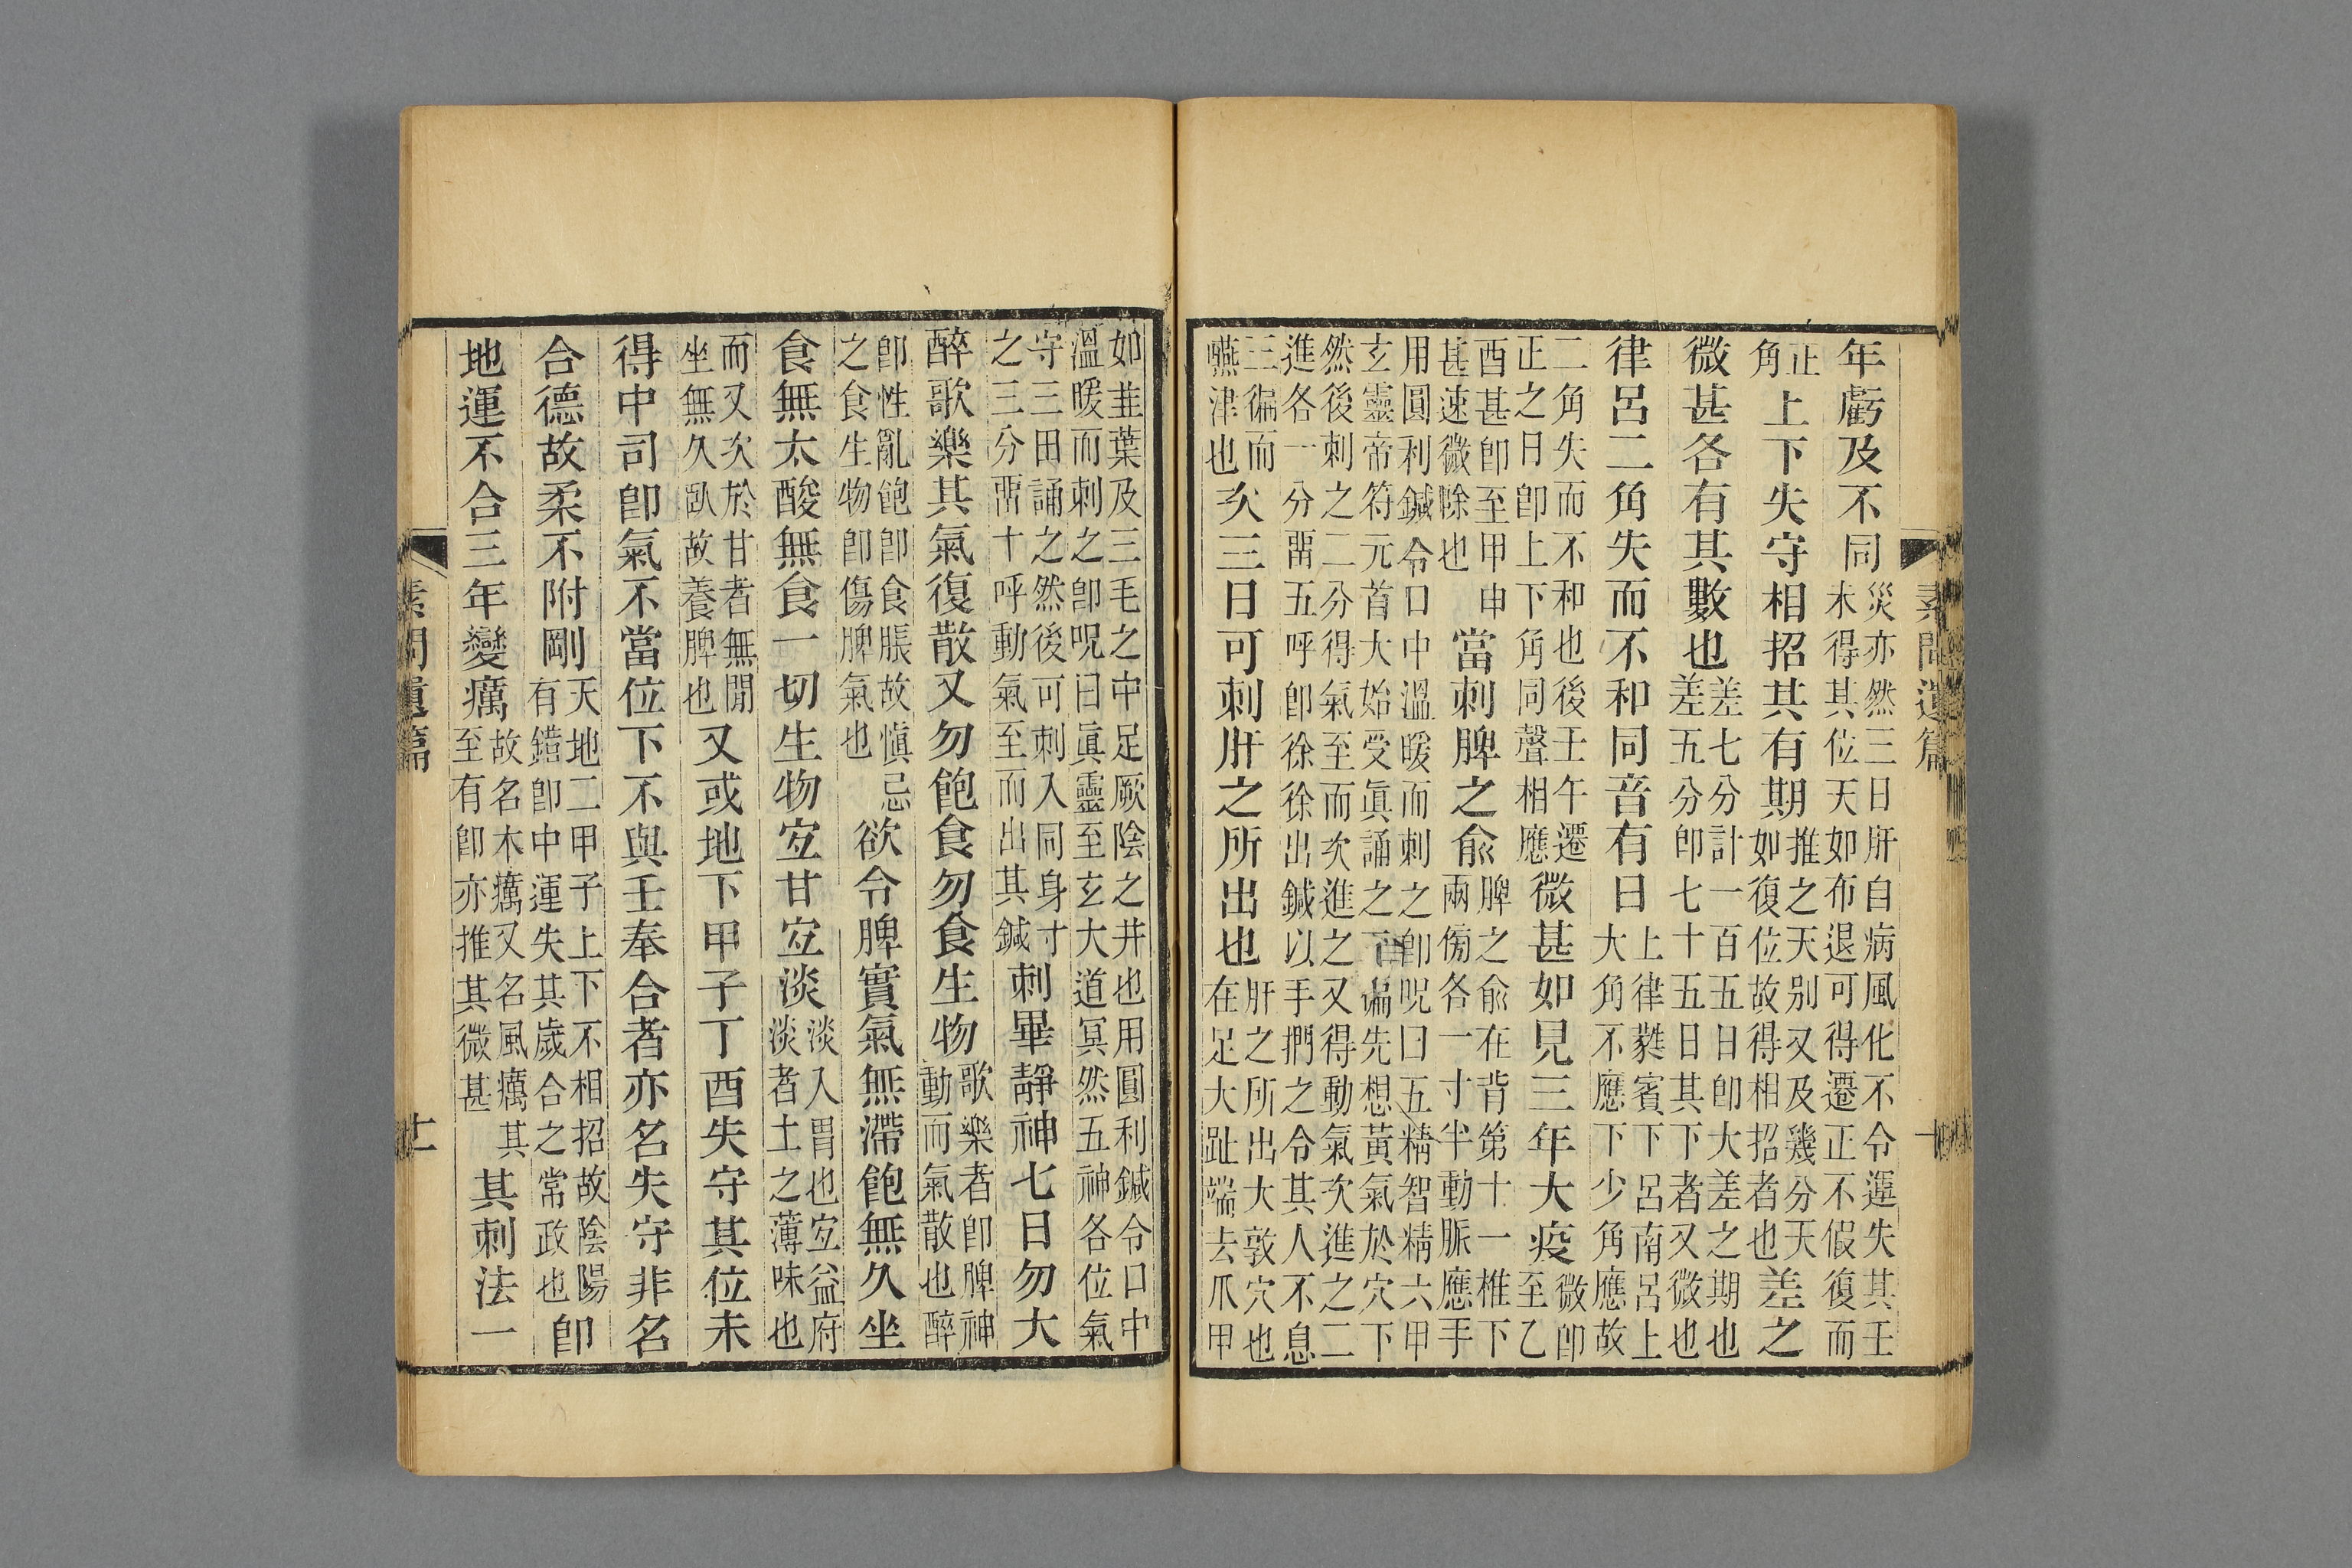 素問遺篇 十
年虧及不同災亦然三日肝自病風化不令遲失其壬
未得其位天如布退可得遷正不假復而
正
角上下失守相招其有期推之天别又及幾分天
如復位故得相招者也差之
微甚各有其數也差七分計一百五日卽大差之期也
差五分卽七十五日其下者又微也
律呂二角失而不和同音有日上律蕤賓下呂南呂上
大角不應下少角應故
二角失而不和也後壬午遷
正之日卽上下角同聲相應微甚如見三年大疫微卽
至乙
酉甚卽至甲申
甚速微除也當刺脾之兪脾之兪在背第十一椎下
兩傍各一寸半動脈應手
用圓利鍼令口中溫暖而刺之卽呪曰五精智精六甲
玄靈帝符元首大始受眞誦之徧先想黃氣於穴下
然後刺之二分得氣至而次進之又得動氣次進之二
進各一分畱五呼卽徐徐出鍼以手捫之令其人不息
三徧而
嚥津也次三日可刺肝之所出也肝之所出大敦穴也
在足大趾端去爪甲
如韭葉及三毛之中足厥陰之井也用圓利鍼令口中
溫暖而刺之卽呪曰眞靈至玄大道冥然五神各位氣
守三田誦之然後可刺入同身寸
之三分畱十呼動氣至而出其鍼刺畢靜神七日勿大
醉歌樂其氣復散又勿飽食勿食生物歌樂者卽脾神
動而氣散也醉
卽性亂飽卽食脹故愼忌
之食生物卽傷脾氣也欲令脾實氣無滯飽無久坐
食無太酸無食一切生物宐甘宐淡淡入胃也宐益府
淡者土之薄味也
而又次於甘者無閒
坐無久臥故養脾也又或地下甲子丁酉失守其位未
得中司卽氣不當位下不與壬奉合者亦名失守非名
合德故柔不附剛天地二甲子上下不相招故陰陽
有錯卽中運失其歲合之常政也卽
地運不合三年變癘故名木癘又名風癘其
至有卽亦推其微甚其刺法一
素問遺篇 十一